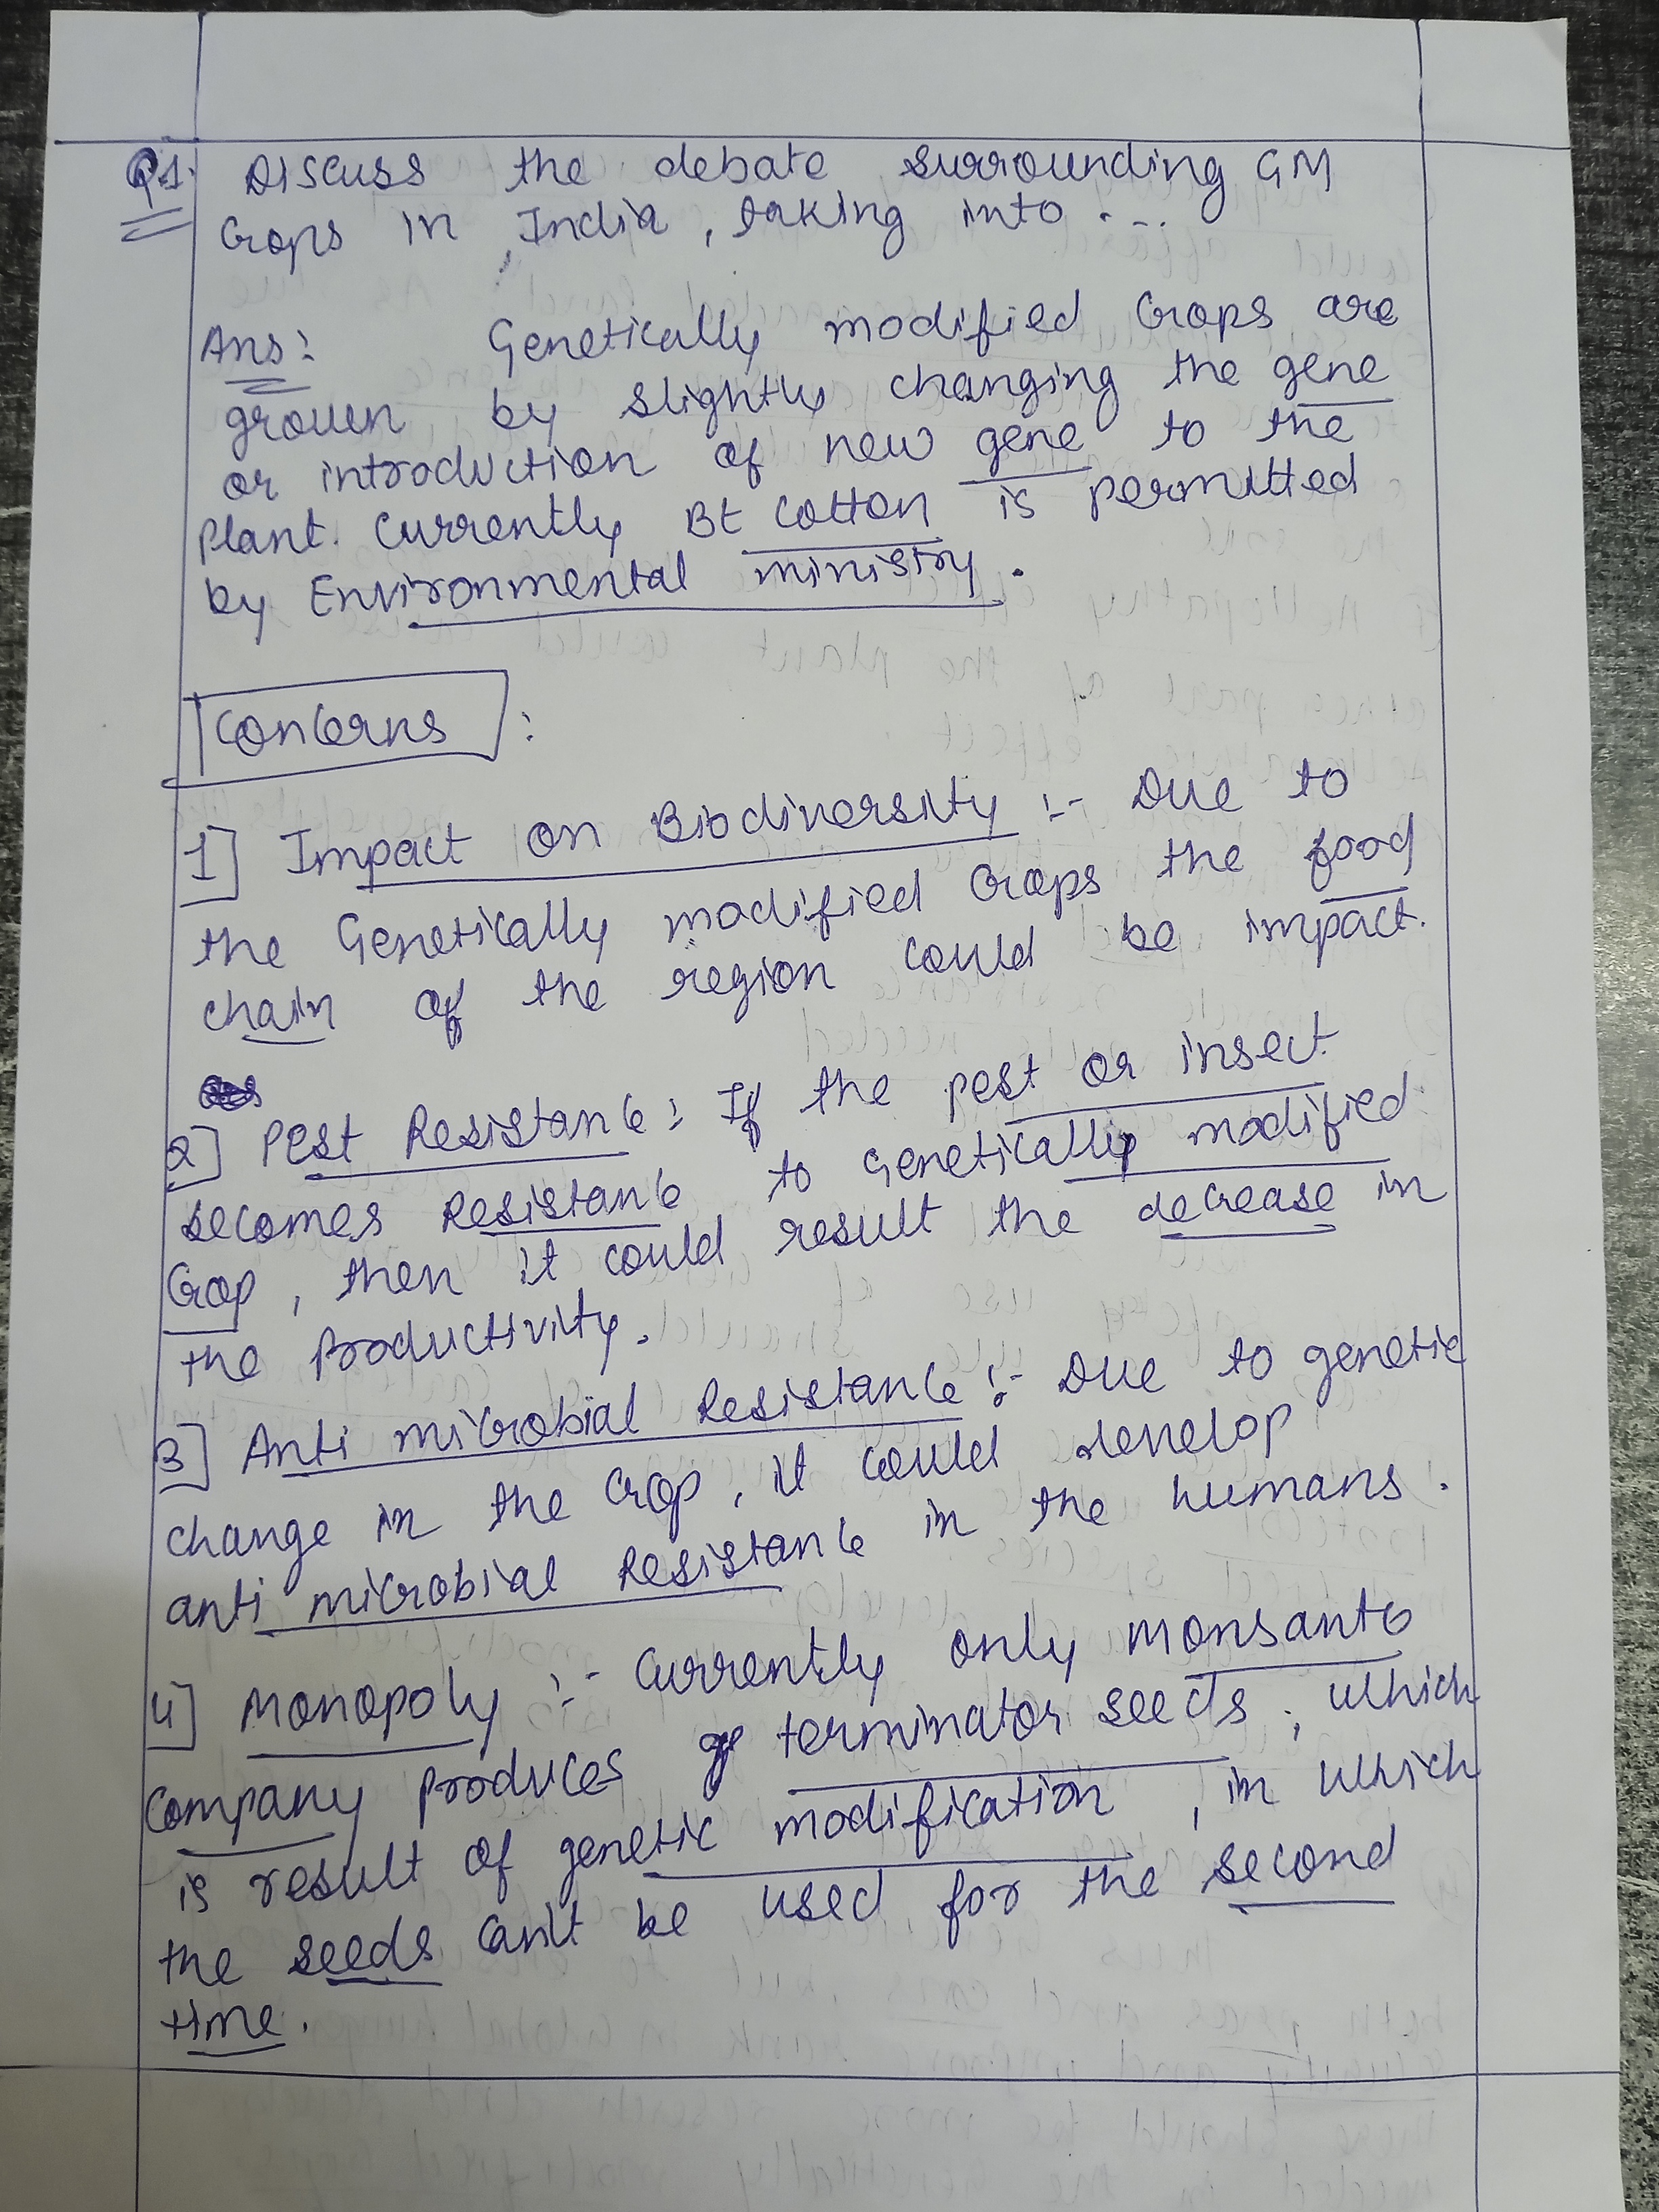 Q1. Discuss the debate surrounding GM
Crops in India, taking into ....
Ans: Genetically modified Crops are
grown by slightly changing the gene
or introduction of new gene to the
Plant. Currently Bt Cotton is permitted
by Environmental ministry.
Concerns :
1] Impact on Biodiversity :- Due to
the Genetically modified Crops the food
chain of the region could be impact.
2] Pest Resistance : If the pest or insect
becomes Resistance to Genetically modified
Crop, then it could result the decrease in
the Productivity.
3] Anti microbial Resistance :- Due to genetic
change in the crop, it could develop
anti microbial Resistance in the humans.
4] Monopoly :- Currently only Monsanto
Company produces terminator seeds, which
is result of genetic modification, in which
the seeds can't be used for the second
time.